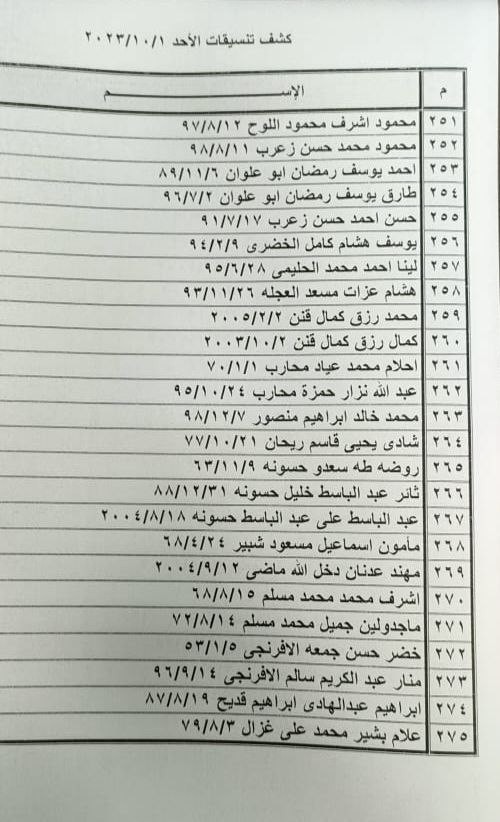 كشف تنسيقات الأحد ٢٠٢٣/١٠/١
م الإســـــــــــــم
٢٥١ محمود اشرف محمود اللوح ٩٧/٨/١٢
٢٥٢ محمود محمد حسن زعرب ٩٨/٨/١١
٢٥٣ احمد يوسف رمضان ابو علوان ٨٩/١١/٦
٢٥٤ طارق يوسف رمضان ابو علوان ٩٦/٧/٢
٢٥٥ حسن احمد حسن زعرب ٩١/٧/١٧
٢٥٦ يوسف هشام كامل الخضرى ٩٤/٢/٩
٢٥٧ لينا احمد محمد الحليمى ٩٥/٦/٢٨
٢٥٨ هشام عزات مسعد العجله ٩٣/١١/٢٦
٢٥٩ محمد رزق كمال قنن ٢٠٠٥/٢/٢
٢٦٠ كمال رزق كمال قنن ٢٠٠٣/١٠/٢
٢٦١ احلام محمد عياد محارب ٧٠/١/١
٢٦٢ عبد الله نزار حمزة محارب ٩٥/١٠/٢٤
٢٦٣ محمد خالد ابراهيم منصور ٩٨/١٢/٧
٢٦٤ شادى يحيى قاسم ريحان ٧٧/١٠/٢١
٢٦٥ روضه طه سعدو حسونه ٦٣/١١/٩
٢٦٦ ثائر عبد الباسط خليل حسونه ٨٨/١٢/٣١
٢٦٧ عبد الباسط على عبد الباسط حسونه ٢٠٠٤/٨/١٨
٢٦٨ مأمون اسماعيل مسعود شبير ٦٨/٤/٢٤
٢٦٩ مهند عدنان دخل الله ماضى ٢٠٠٤/٩/١٢
٢٧٠ اشرف محمد محمد مسلم ٦٨/٨/١٥
٢٧١ ماجدولين جميل محمد مسلم ٧٢/٨/١٤
٢٧٢ خضر حسن جمعه الافرنجى ٥٣/١/٥
٢٧٣ منار عبد الكريم سالم الافرنجى ٩٦/٩/١٤
٢٧٤ ابراهيم عبدالهادى ابراهيم قديح ٨٧/٨/١٩
٢٧٥ علام بشير محمد على غزال ٧٩/٨/٣